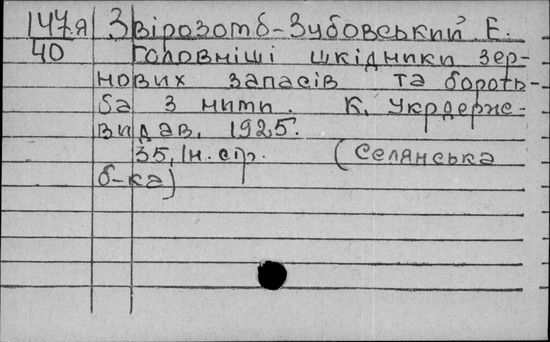 147я Звірозомб-Зубовський Е.
40 Головніші шкідники зер-
нових запасів та бороть-
ба з ними. К. Укрдерже-
видав. 1925.
35, 1н. стр. (Селянська
б-ка)